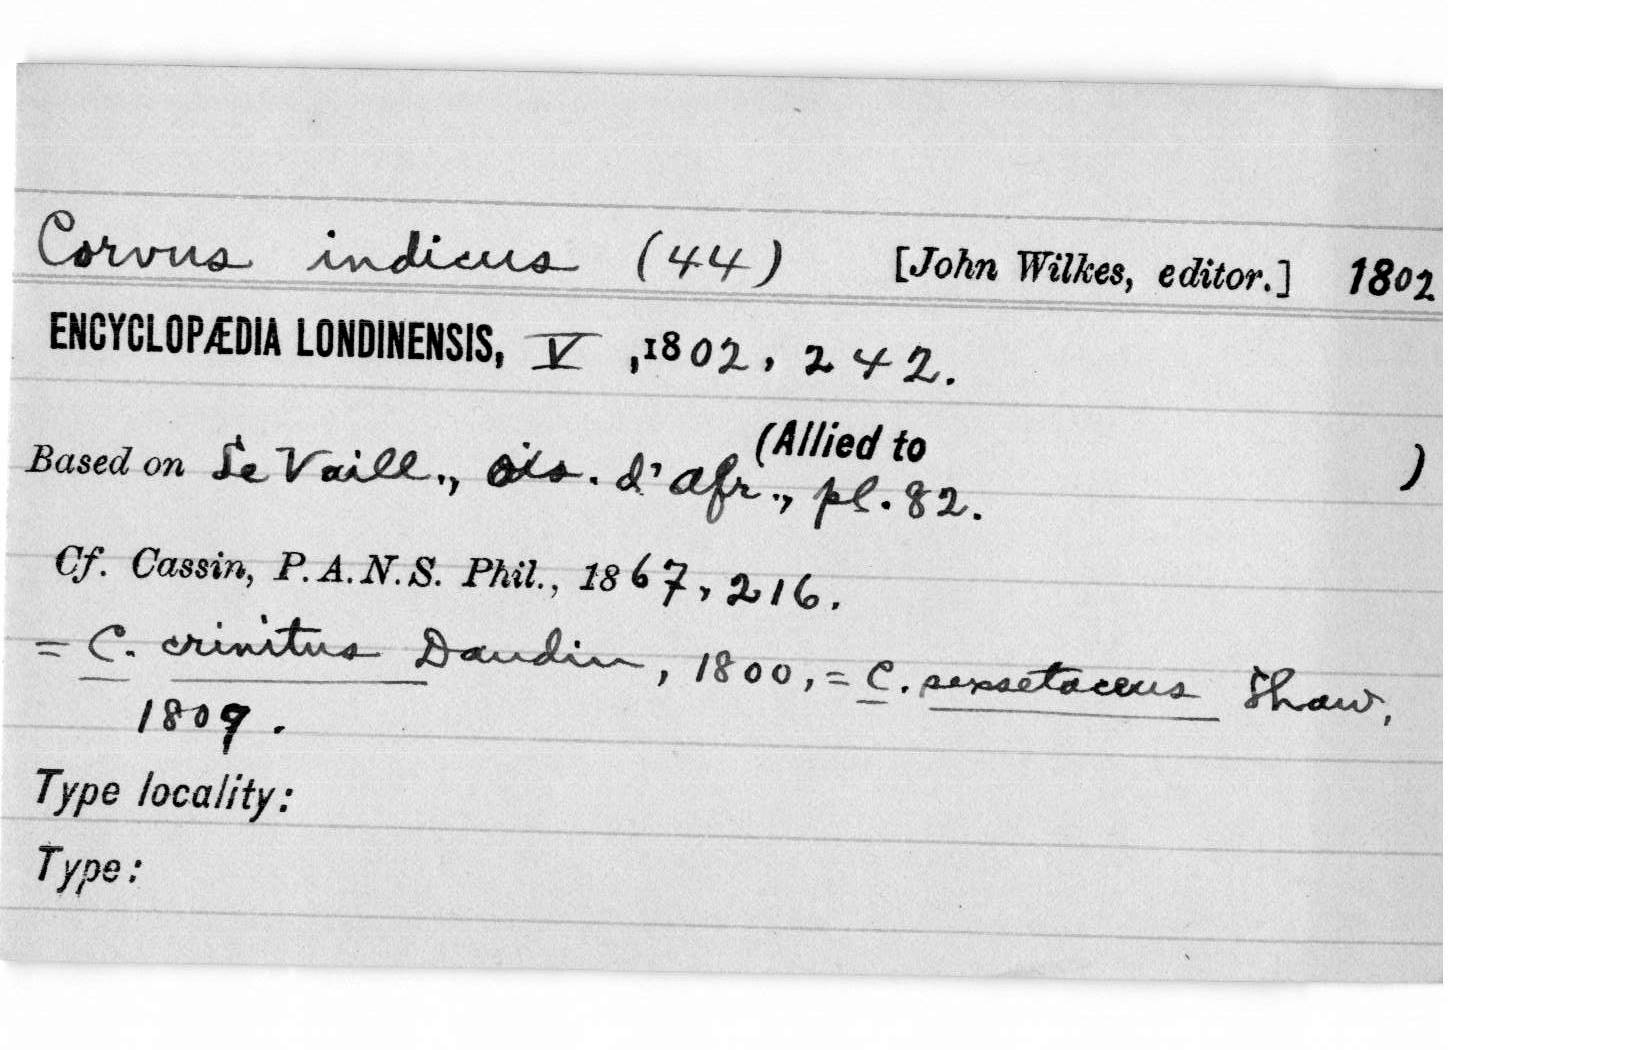 Corvus indicus (44) [John Wilkes, editor.] 1802
ENCYCLOPÆDIA LONDINENSIS, V, 1802, 242.
(Allied to )
Based on Le Vaill., Ois. d'Afr., pl. 82.
Cf. Cassin, P. A. N. S. Phil., 1867, 216.
= C. crinitus Daudin, 1800, = C. sexsetaceus Shaw,
1809.
Type locality:
Type: